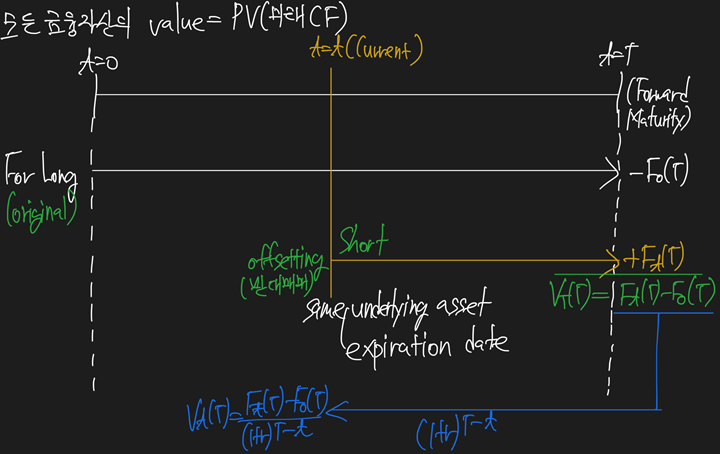 모든 금융자산의 value = PV(미래CF)
t=0
t=t(Current)
t=T
(Forward
Maturity)
For Long
(original)
-F₀(T)
Short
offsetting
(반대매매)
+Fₜ(T)
V_T(T)= Fₜ(T)-F₀(T)
same underlying asset
expiration date
Vₜ(T)= Fₜ(T)-F₀(T)
(1+r)^T-t
(1+r)^T-t